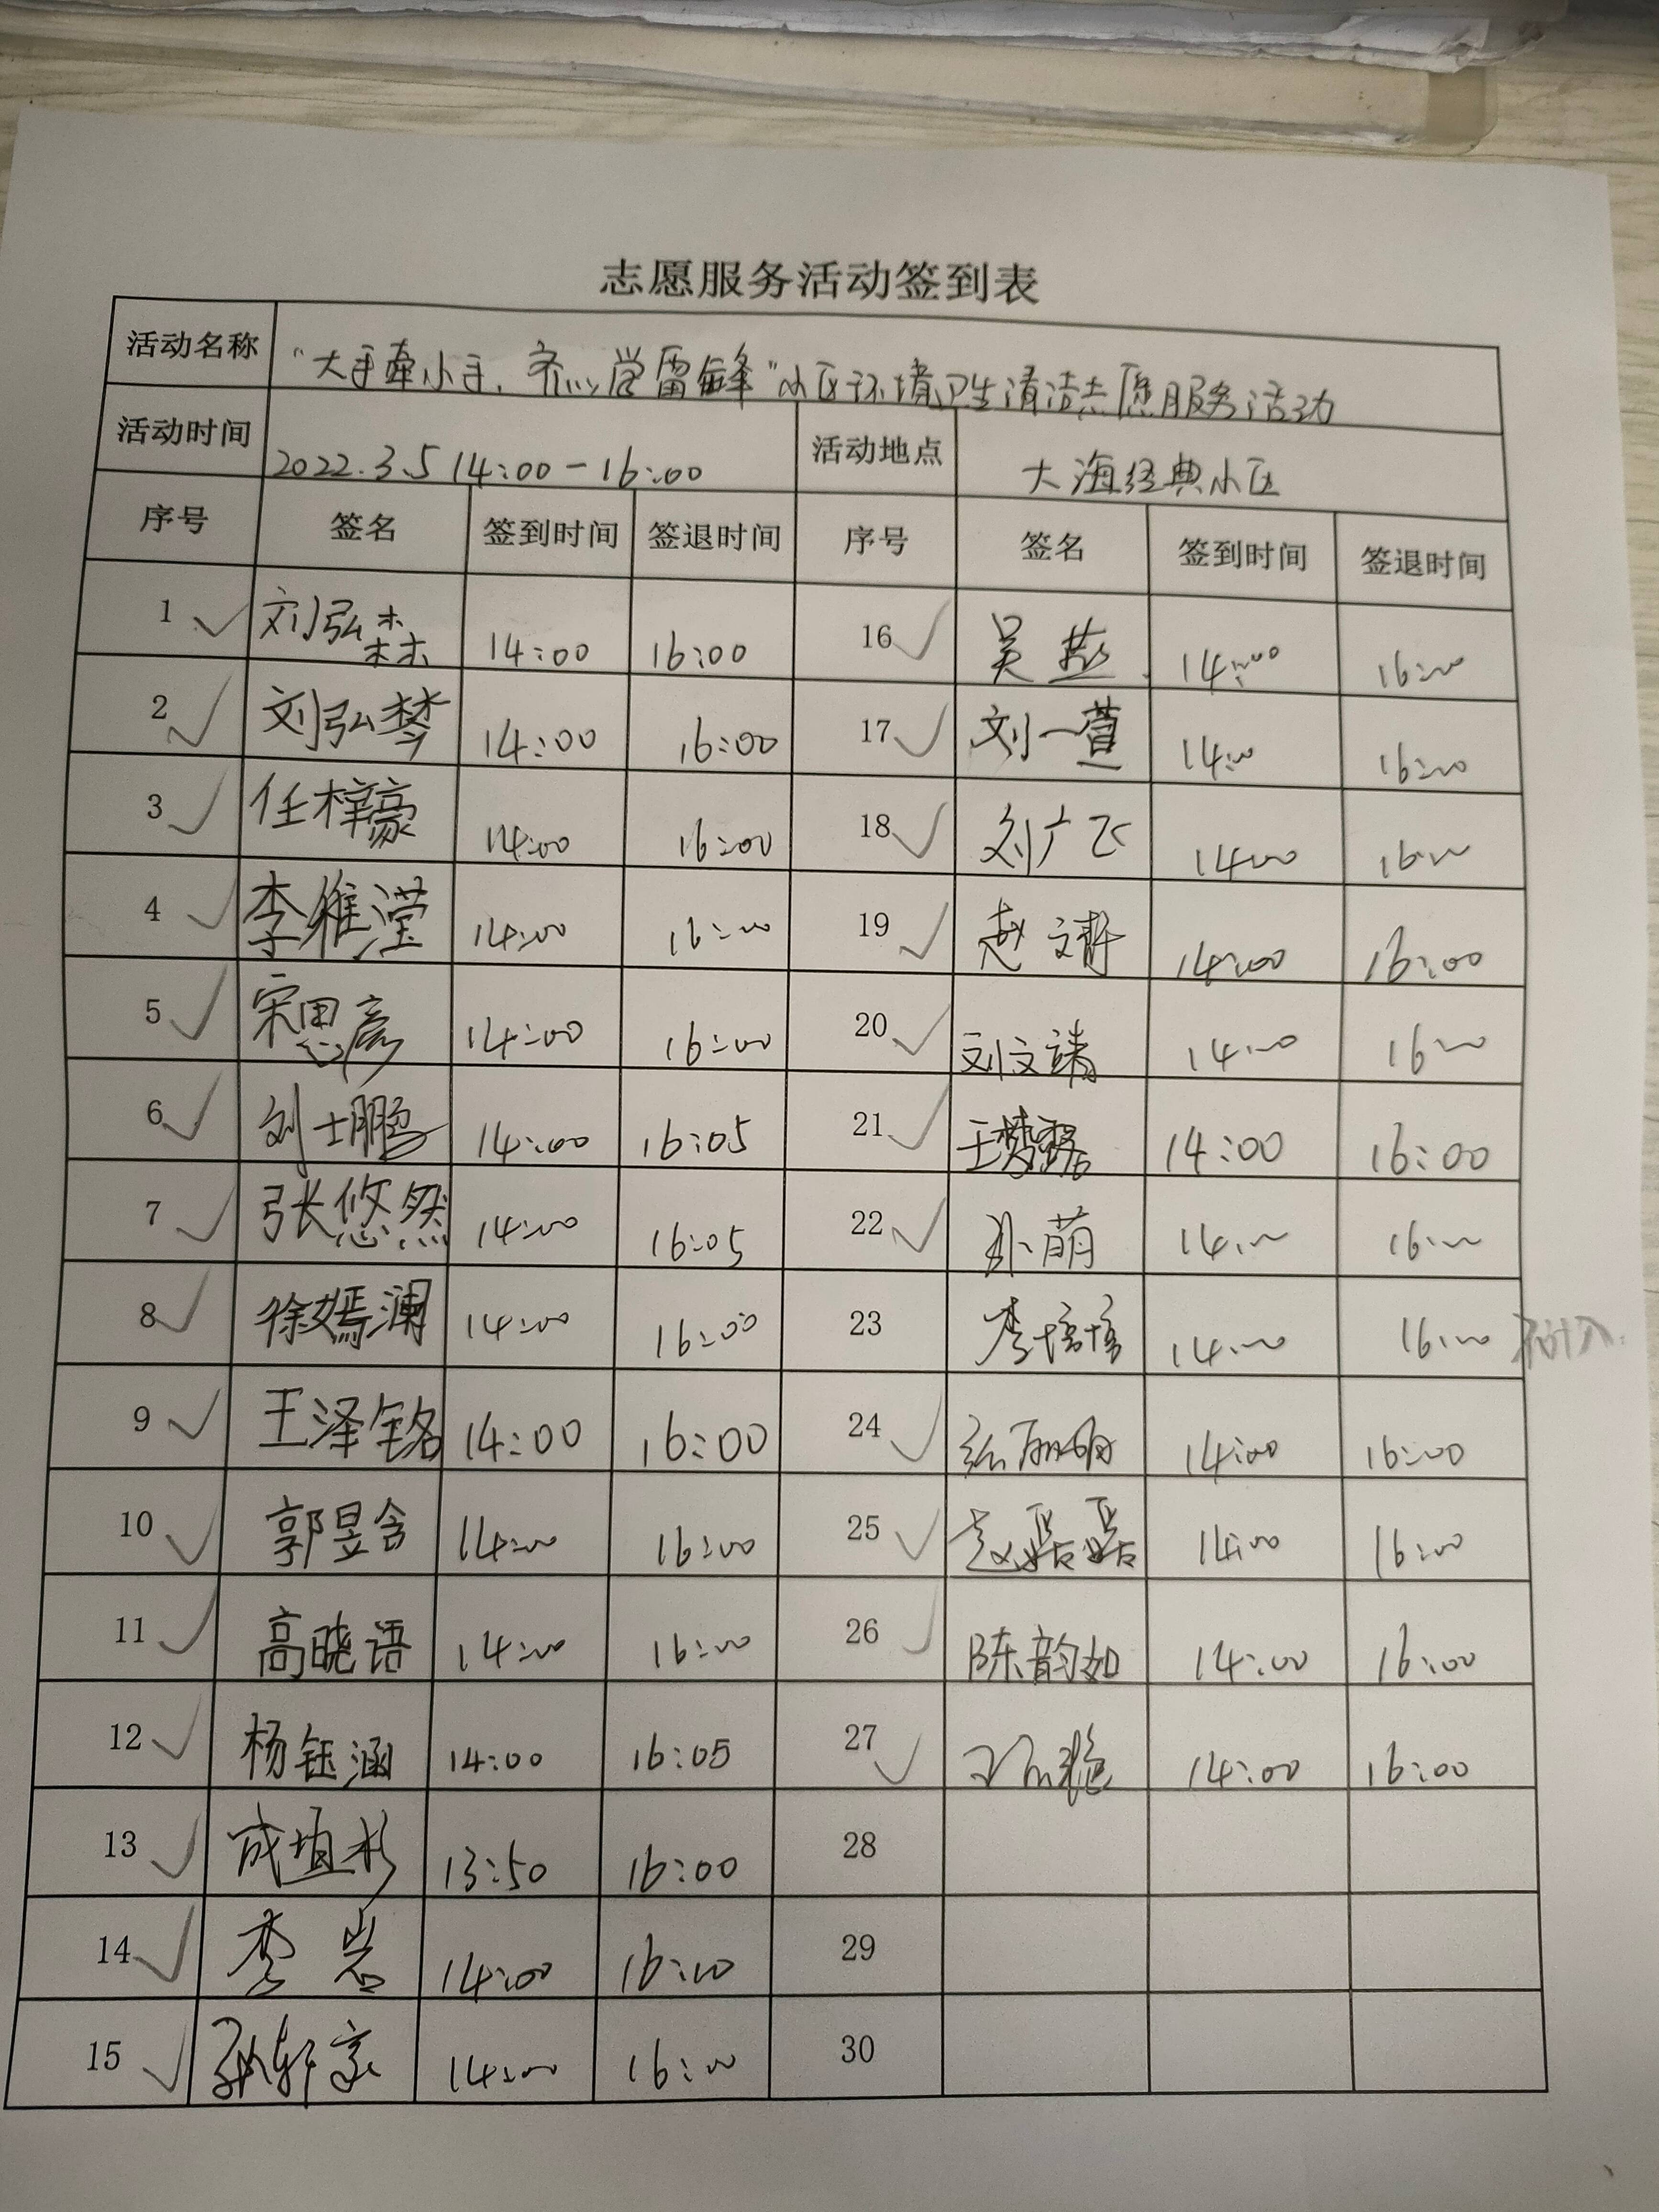 志愿服务活动签到表
活动名称 "大手牵小手、齐心学雷锋"小区环境卫生清洁志愿服务活动
活动时间 2022.3.5 14:00-16:00 活动地点 大海经典小区
序号 签名 签到时间 签退时间 序号 签名 签到时间 签退时间
1 刘弘森 14:00 16:00 16 吴燕 14:00 16:00
2 刘弘梦 14:00 16:00 17 刘一萱 14:00 16:00
3 任梓豪 14:00 16:00 18 刘广飞 14:00 16:00
4 李雅滢 14:00 16:00 19 赵文静 14:00 16:00
5 宋思彦 14:00 16:00 20 刘文靖 14:00 16:00
6 刘士鹏 14:00 16:05 21 王梦 14:00 16:00
7 张悠然 14:00 16:05 22 孙萌 14:00 16:00
8 徐嫣澜 14:00 16:00 23 李培培 14:00 16:00 不计入
9 王泽铭 14:00 16:00 24 14:00 16:00
10 郭昱含 14:00 16:00 25 赵磊磊 14:00 16:00
11 高晓语 14:00 16:00 26 陈韵如 14:00 16:00
12 杨钰涵 14:00 16:05 27 14:00 16:00
13 成埴杉 13:50 16:00 28
14 李岩 14:00 16:00 29
15 孙轩 14:00 16:00 30